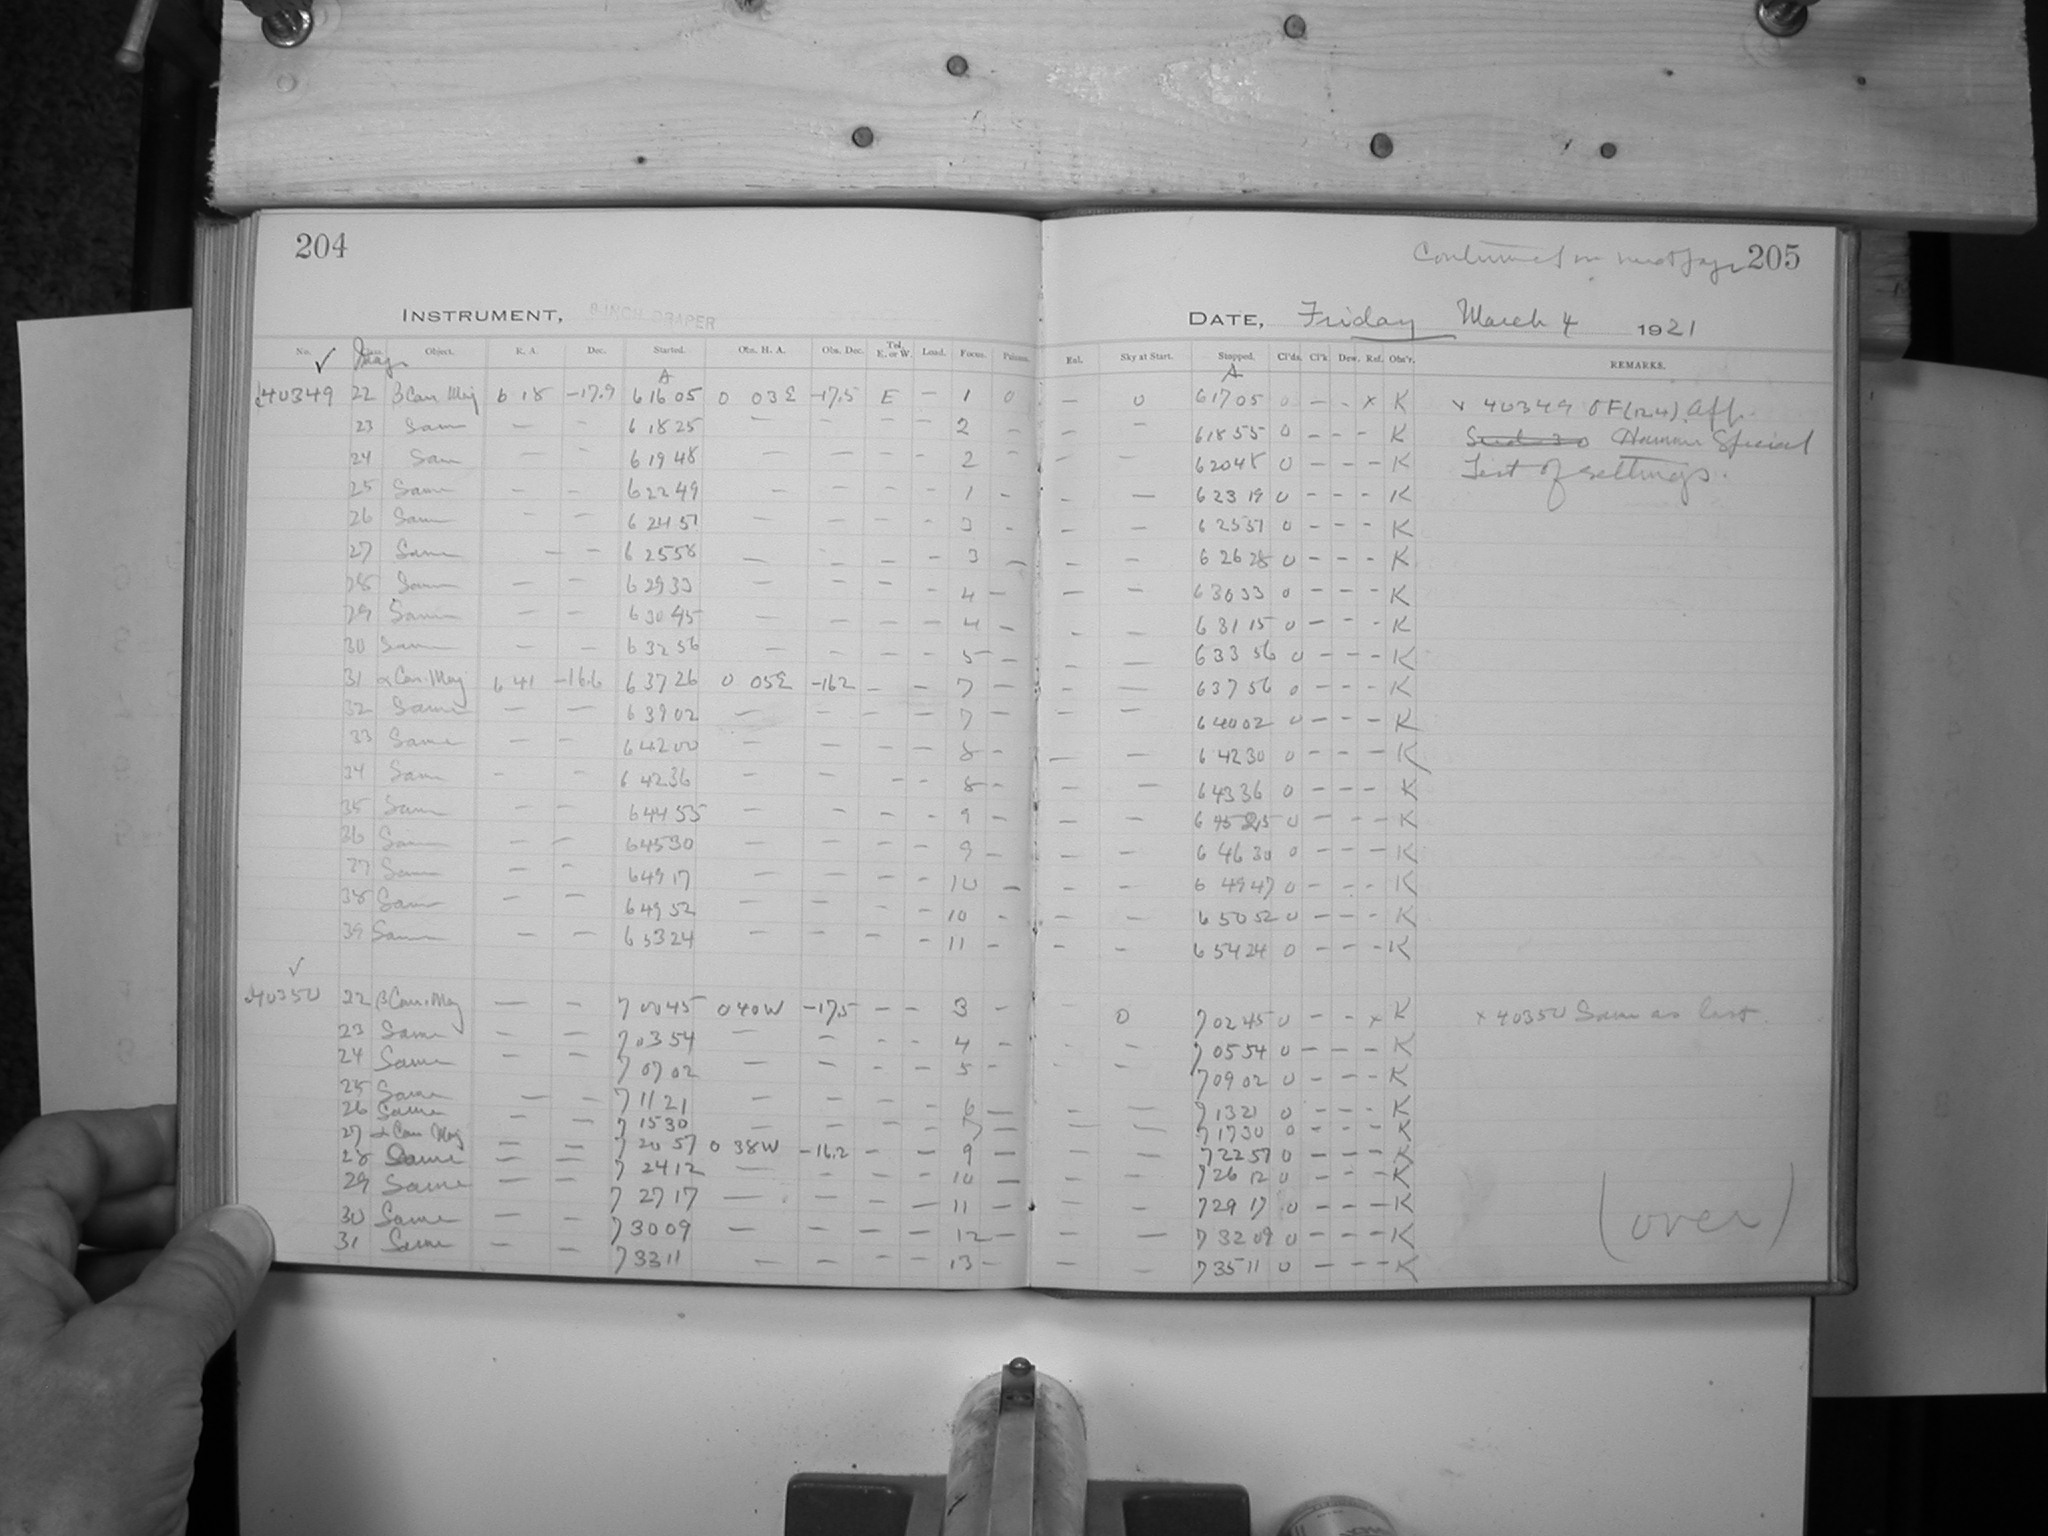 204
205
INSTRUMENT, 8 INCH DRAPER
DATE, Friday March 4 1921
No. Object. R. A. Dec. Started. Obs. H. A. Obs. Dec. Tel. E. or W. Load. Focus. Sky at Start. Stopped. Cl'ds. Cl'k Dew. Ref. Obs'r. REMARKS.
A A
40349 22 β Can. Maj 6 18 -17.9 6 16 05 0 03 E -17.5 E - 1 0 - 0 6 17 05 0 - - x K x 40349
23 Same - - 6 18 25 - - - - 2 - - - 6 18 55 0 - - - K Special
24 Same - - 6 19 48 - - - - 2 - - - 6 20 48 0 - - - K Test of settings.
25 Same - - 6 22 49 - - - - 1 - - - 6 23 19 0 - - - K
26 Same - - 6 24 51 - - - - 3 - - - 6 25 51 0 - - - K
27 Same - - 6 25 58 - - - - 3 - - - 6 26 28 0 - - - K
28 Same - - 6 29 33 - - - - 4 - - - 6 30 33 0 - - - K
29 Same - - 6 30 45 - - - - 4 - - - 6 31 15 0 - - - K
30 Same - - 6 32 56 - - - - 5 - - - 6 33 56 0 - - - K
31 α Can. Maj 6 41 -16.6 6 37 26 0 05 E -16.2 - - 7 - - - 6 37 56 0 - - - K
32 Same - - 6 39 02 - - - - 7 - - - 6 40 02 0 - - - K
33 Same - - 6 42 00 - - - - 8 - - - 6 42 30 0 - - - K
34 Same - - 6 42 36 - - - - 8 - - - 6 43 36 0 - - - K
35 Same - - 6 44 55 - - - - 9 - - - 6 45 25 0 - - - K
36 Same - - 6 45 30 - - - - 9 - - - 6 46 30 0 - - - K
37 Same - - 6 49 17 - - - - 10 - - - 6 49 47 0 - - - K
38 Same - - 6 49 52 - - - - 10 - - - 6 50 52 0 - - - K
39 Same - - 6 53 24 - - - - 11 - - - 6 54 24 0 - - - K
40350 22 β Can. Maj - - 7 00 45 0 40 W -17.5 - - 3 - - 0 7 02 45 0 - - x K x 40350 Same as last.
23 Same - - 7 03 54 - - - - 4 - - - 7 05 54 0 - - - K
24 Same - - 7 07 02 - - - - 5 - - - 7 09 02 0 - - - K
25 Same - - 7 11 21 - - - - 6 - - - 7 13 21 0 - - - K
26 Same - - 7 15 30 - - - - 7 - - - 7 17 30 0 - - - K
27 α Can Maj - - 7 20 57 0 38 W -16.2 - - 9 - - - 7 22 57 0 - - - K
28 Same - - 7 24 12 - - - - 10 - - - 7 26 12 0 - - - K
29 Same - - 7 27 17 - - - - 11 - - - 7 29 17 0 - - - K
30 Same - - 7 30 09 - - - - 12 - - - 7 32 09 0 - - - K
31 Same - - 7 33 11 - - - - 13 - - - 7 35 11 0 - - - K
(over)